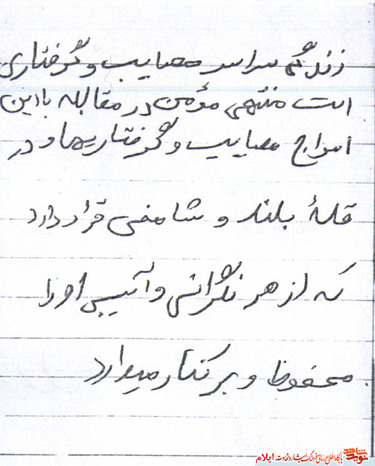 زندگی سراسر مصایب و گرفتاری
است منتهی مؤمن در مقابله با این
امواج مصایب و گرفتاریها و در
قلهٔ بلند و شامخی قرار دارد
که از هر نگرانی و آسیبی او را
محفوظ و برکنار میدارد.
نوید شاهد
ایلام